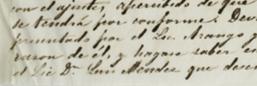 con el ajuste, apercibido de que
se tendrá por conforme. Dev.
presentado por el Lic. Arango y
varon de él, y hagase saber en
el Lic D. Luis Mendez que desen